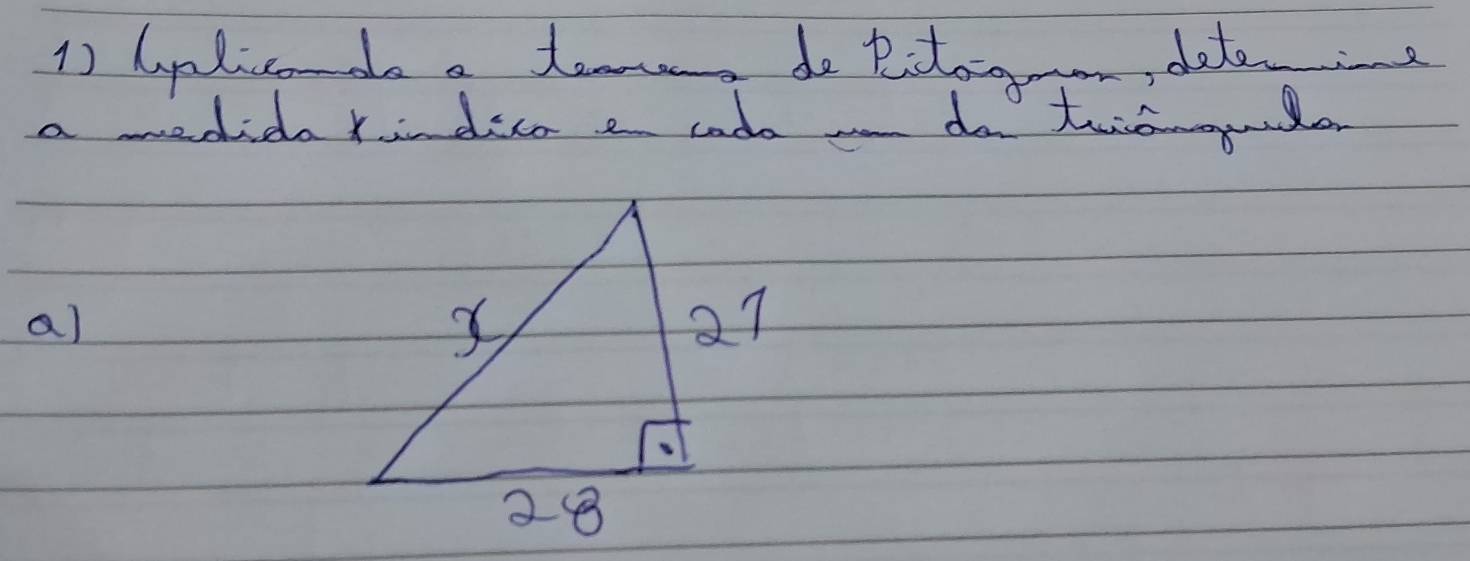 1) Aplicando o teorema de Pitágoras, determine
a medida x indica em cada um dos triângulos
a)
x
21
28